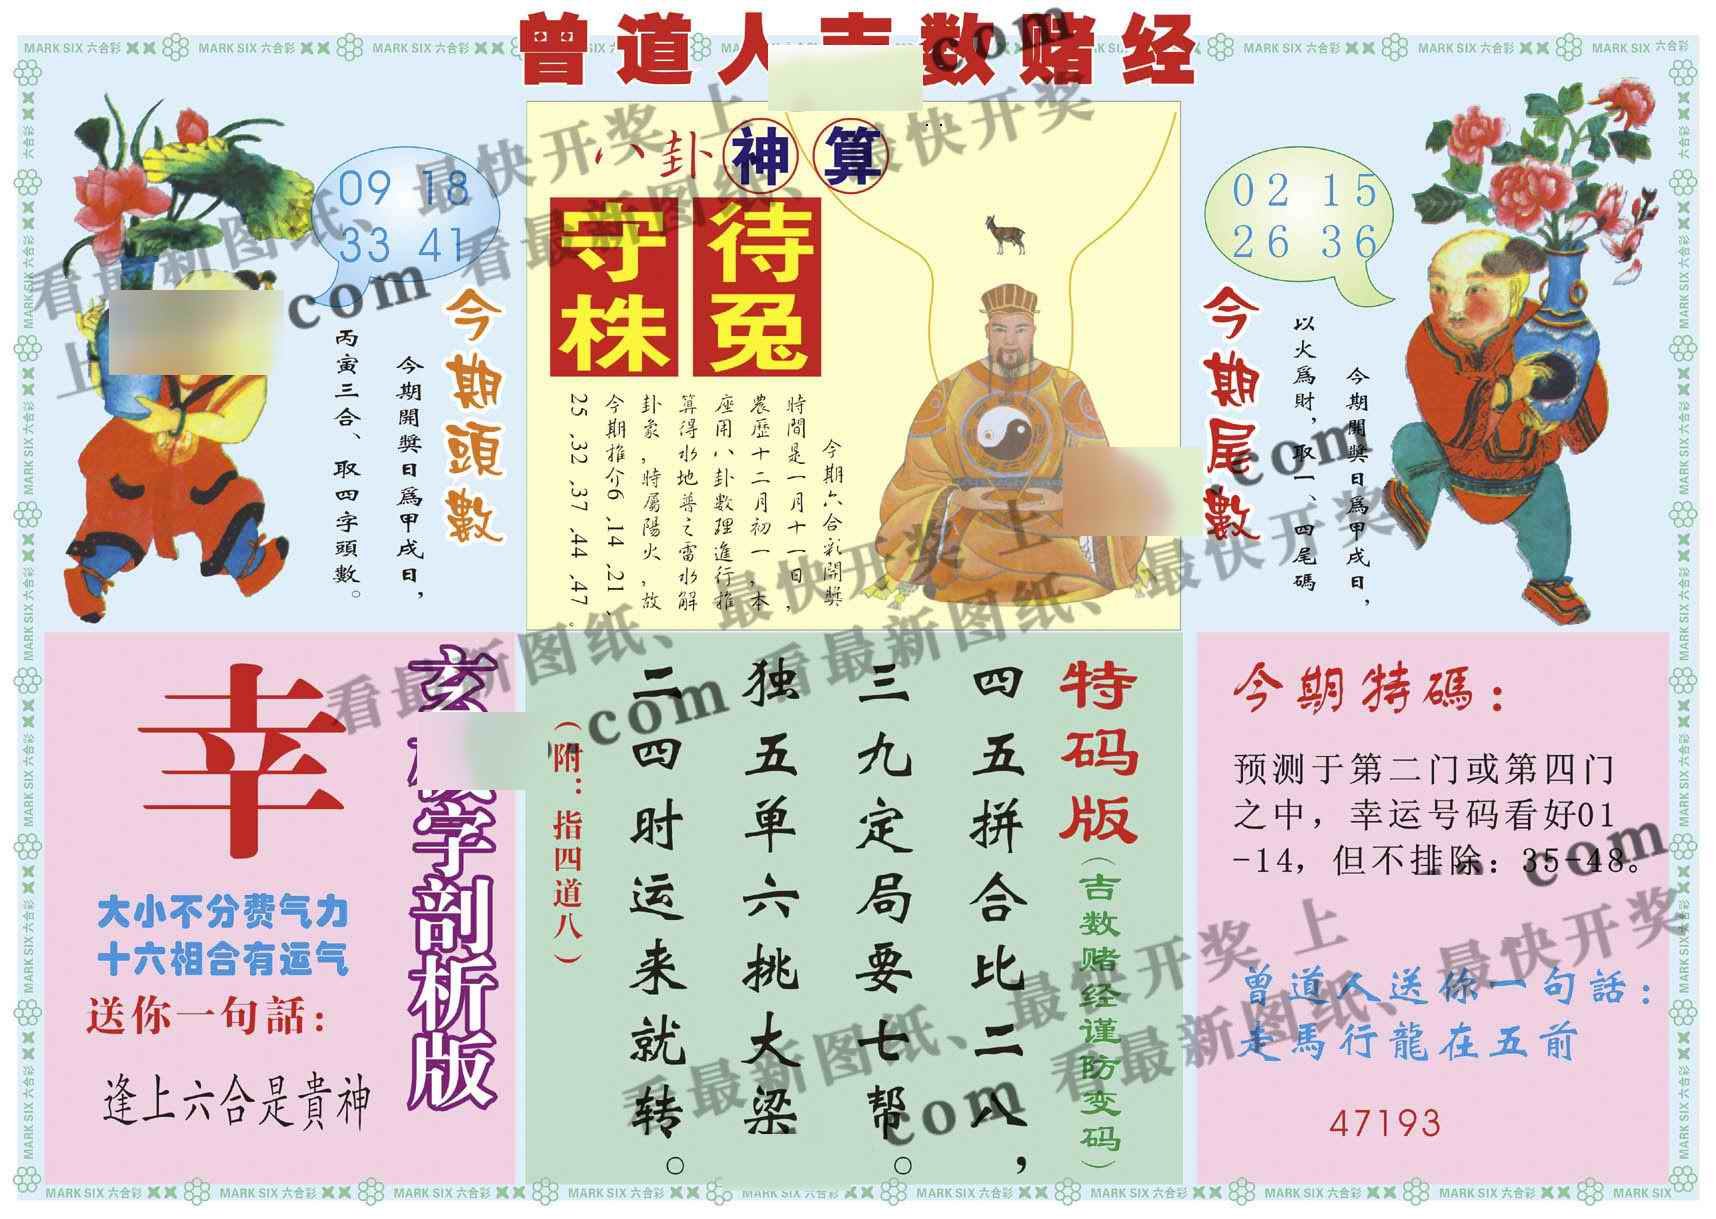 曾道人吉数赌经
MARK SIX 六合彩
八卦神算
守株待兔
今期六合彩開獎
時間是一月十一日,
農歷十二月初一,本
座用八卦数理進行推
算得水地普之雷水解
卦象,時屬陽火,故
今期推介6、14、21、
25、32、37、44、47。
09 18
33 41
今期頭數
今期開獎日為甲戌日,
丙寅三合、取四字頭數。
02 15
26 36
今期尾數
今期開獎日為甲戌日,
以火為財,取一、四尾碼
字剖析版
幸
大小不分费气力
十六相合有运气
送你一句話:
逢上六合是貴神
特码版
(吉数赌经谨防变码)
四五拼合比二八,
三九定局要七帮。
独五单六挑大梁
二四时运来就转。
(附:指四道八)
今期特碼:
预测于第二门或第四门
之中,幸运号码看好01
-14,但不排除:35-48。
曾道人送你一句話:
走馬行龍在五前
47193
看最新图纸、最快开奖 上
com